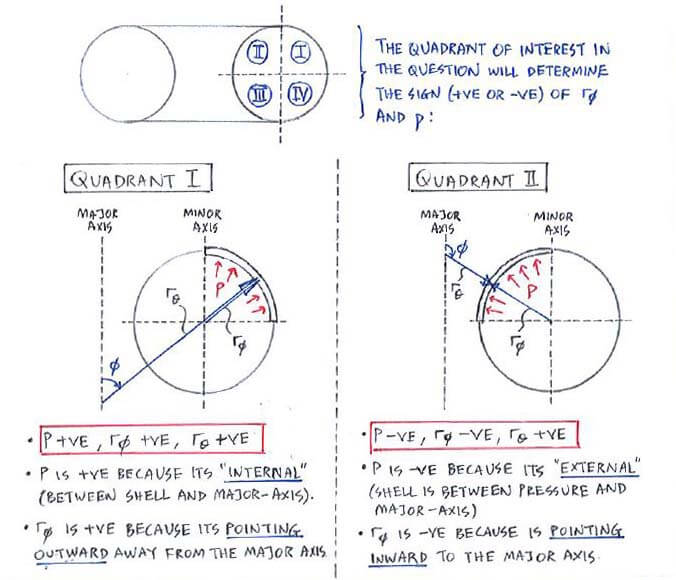 II I
III IV
THE QUADRANT OF INTEREST IN
THE QUESTION WILL DETERMINE
THE SIGN (+VE OR -VE) OF rφ
AND p:
QUADRANT I
MAJOR
AXIS
MINOR
AXIS
P
rθ
rφ
φ
• P +VE, rφ +VE, rθ +VE
• P IS +VE BECAUSE ITS "INTERNAL"
(BETWEEN SHELL AND MAJOR-AXIS).
• rφ IS +VE BECAUSE ITS POINTING
OUTWARD AWAY FROM THE MAJOR AXIS
QUADRANT II
MAJOR
AXIS
MINOR
AXIS
φ
rθ
P
rφ
• P -VE, rφ -VE, rθ +VE
• P IS -VE BECAUSE ITS "EXTERNAL"
(SHELL IS BETWEEN PRESSURE AND
MAJOR-AXIS)
• rφ IS -VE BECAUSE IS POINTING
INWARD TO THE MAJOR AXIS.